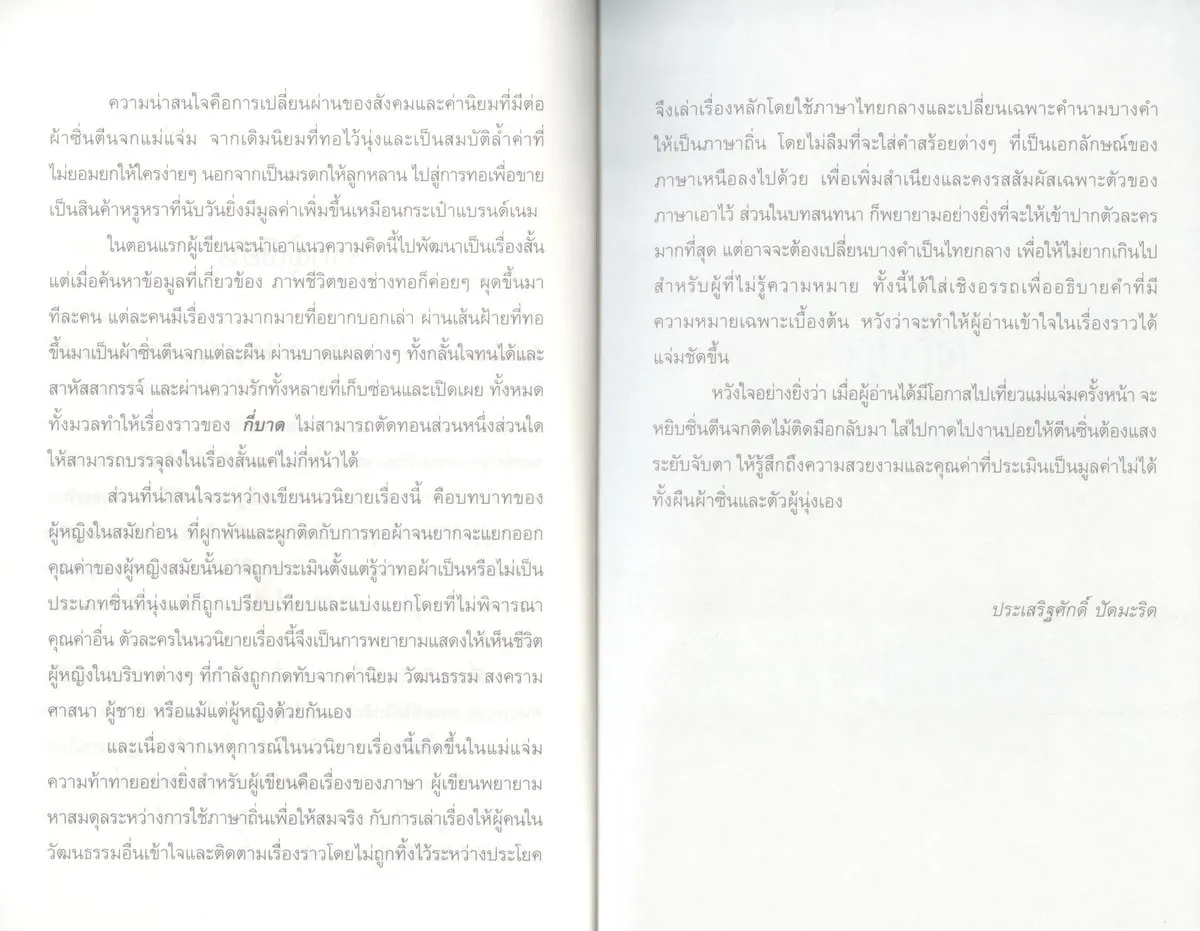 ความน่าสนใจคือการเปลี่ยนผ่านของสังคมและค่านิยมที่มีต่อ
ผ้าซิ่นตีนจกแม่แจ่ม จากเดิมนิยมที่ทอไว้นุ่งและเป็นสมบัติล้ำค่าที่
ไม่ยอมยกให้ใครง่ายๆ นอกจากเป็นมรดกให้ลูกหลาน ไปสู่การทอเพื่อขาย
เป็นสินค้าหรูหราที่นับวันยิ่งมีมูลค่าเพิ่มขึ้นเหมือนกระเป๋าแบรนด์เนม
ในตอนแรกผู้เขียนจะนำเอาแนวความคิดนี้ไปพัฒนาเป็นเรื่องสั้น
แต่เมื่อค้นหาข้อมูลที่เกี่ยวข้อง ภาพชีวิตของช่างทอก็ค่อยๆ ผุดขึ้นมา
ทีละคน แต่ละคนมีเรื่องราวมากมายที่อยากบอกเล่า ผ่านเส้นฝ้ายที่ทอ
ขึ้นมาเป็นผ้าซิ่นตีนจกแต่ละผืน ผ่านบาดแผลต่างๆ ทั้งกลั้นใจทนได้และ
สาหัสสากรรจ์ และผ่านความรักทั้งหลายที่เก็บซ่อนและเปิดเผย ทั้งหมด
ทั้งมวลทำให้เรื่องราวของ กี่บาด ไม่สามารถตัดทอนส่วนหนึ่งส่วนใด
ให้สามารถบรรจุลงในเรื่องสั้นแค่ไม่กี่หน้าได้
ส่วนที่น่าสนใจระหว่างเขียนนวนิยายเรื่องนี้ คือบทบาทของ
ผู้หญิงในสมัยก่อน ที่ผูกพันและผูกติดกับการทอผ้าจนยากจะแยกออก
คุณค่าของผู้หญิงสมัยนั้นอาจถูกประเมินตั้งแต่รู้ว่าทอผ้าเป็นหรือไม่เป็น
ประเภทซิ่นที่นุ่งแต่ก็ถูกเปรียบเทียบและแบ่งแยกโดยที่ไม่พิจารณา
คุณค่าอื่น ตัวละครในนวนิยายเรื่องนี้จึงเป็นการพยายามแสดงให้เห็นชีวิต
ผู้หญิงในบริบทต่างๆ ที่กำลังถูกกดทับจากค่านิยม วัฒนธรรม สงคราม
ศาสนา ผู้ชาย หรือแม้แต่ผู้หญิงด้วยกันเอง
และเนื่องจากเหตุการณ์ในนวนิยายเรื่องนี้เกิดขึ้นในแม่แจ่ม
ความท้าทายอย่างยิ่งสำหรับผู้เขียนคือเรื่องของภาษา ผู้เขียนพยายาม
หาสมดุลระหว่างการใช้ภาษาถิ่นเพื่อให้สมจริง กับการเล่าเรื่องให้ผู้คนใน
วัฒนธรรมอื่นเข้าใจและติดตามเรื่องราวโดยไม่ถูกทิ้งไว้ระหว่างประโยค
จึงเล่าเรื่องหลักโดยใช้ภาษาไทยกลางและเปลี่ยนเฉพาะคำนามบางคำ
ให้เป็นภาษาถิ่น โดยไม่ลืมที่จะใส่คำสร้อยต่างๆ ที่เป็นเอกลักษณ์ของ
ภาษาเหนือลงไปด้วย เพื่อเพิ่มสำเนียงและคงรสสัมผัสเฉพาะตัวของ
ภาษาเอาไว้ ส่วนในบทสนทนา ก็พยายามอย่างยิ่งที่จะให้เข้าปากตัวละคร
มากที่สุด แต่อาจจะต้องเปลี่ยนบางคำเป็นไทยกลาง เพื่อให้ไม่ยากเกินไป
สำหรับผู้ที่ไม่รู้ความหมาย ทั้งนี้ได้ใส่เชิงอรรถเพื่ออธิบายคำที่มี
ความหมายเฉพาะเบื้องต้น หวังว่าจะทำให้ผู้อ่านเข้าใจในเรื่องราวได้
แจ่มชัดขึ้น
หวังใจอย่างยิ่งว่า เมื่อผู้อ่านได้มีโอกาสไปเที่ยวแม่แจ่มครั้งหน้า จะ
หยิบซิ่นตีนจกติดไม้ติดมือกลับมา ใส่ไปกาดไปงานปอยให้ตีนซิ่นต้องแสง
ระยับจับตา ให้รู้สึกถึงความสวยงามและคุณค่าที่ประเมินเป็นมูลค่าไม่ได้
ทั้งผืนผ้าซิ่นและตัวผู้นุ่งเอง
ประเสริฐศักดิ์ ปัดมะริด